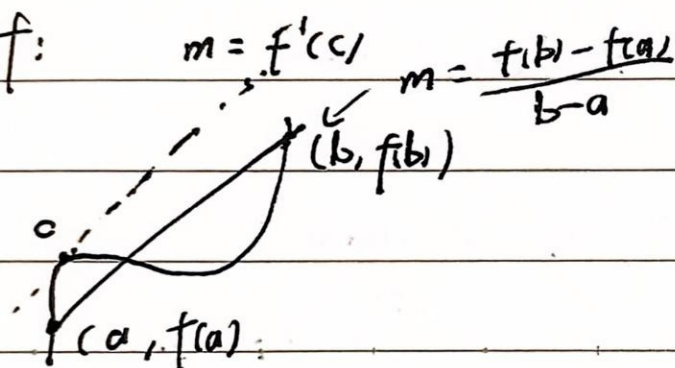 f:
m = f'(c)
m = f(b) - f(a) / b-a
(b, f(b))
c
(a, f(a)